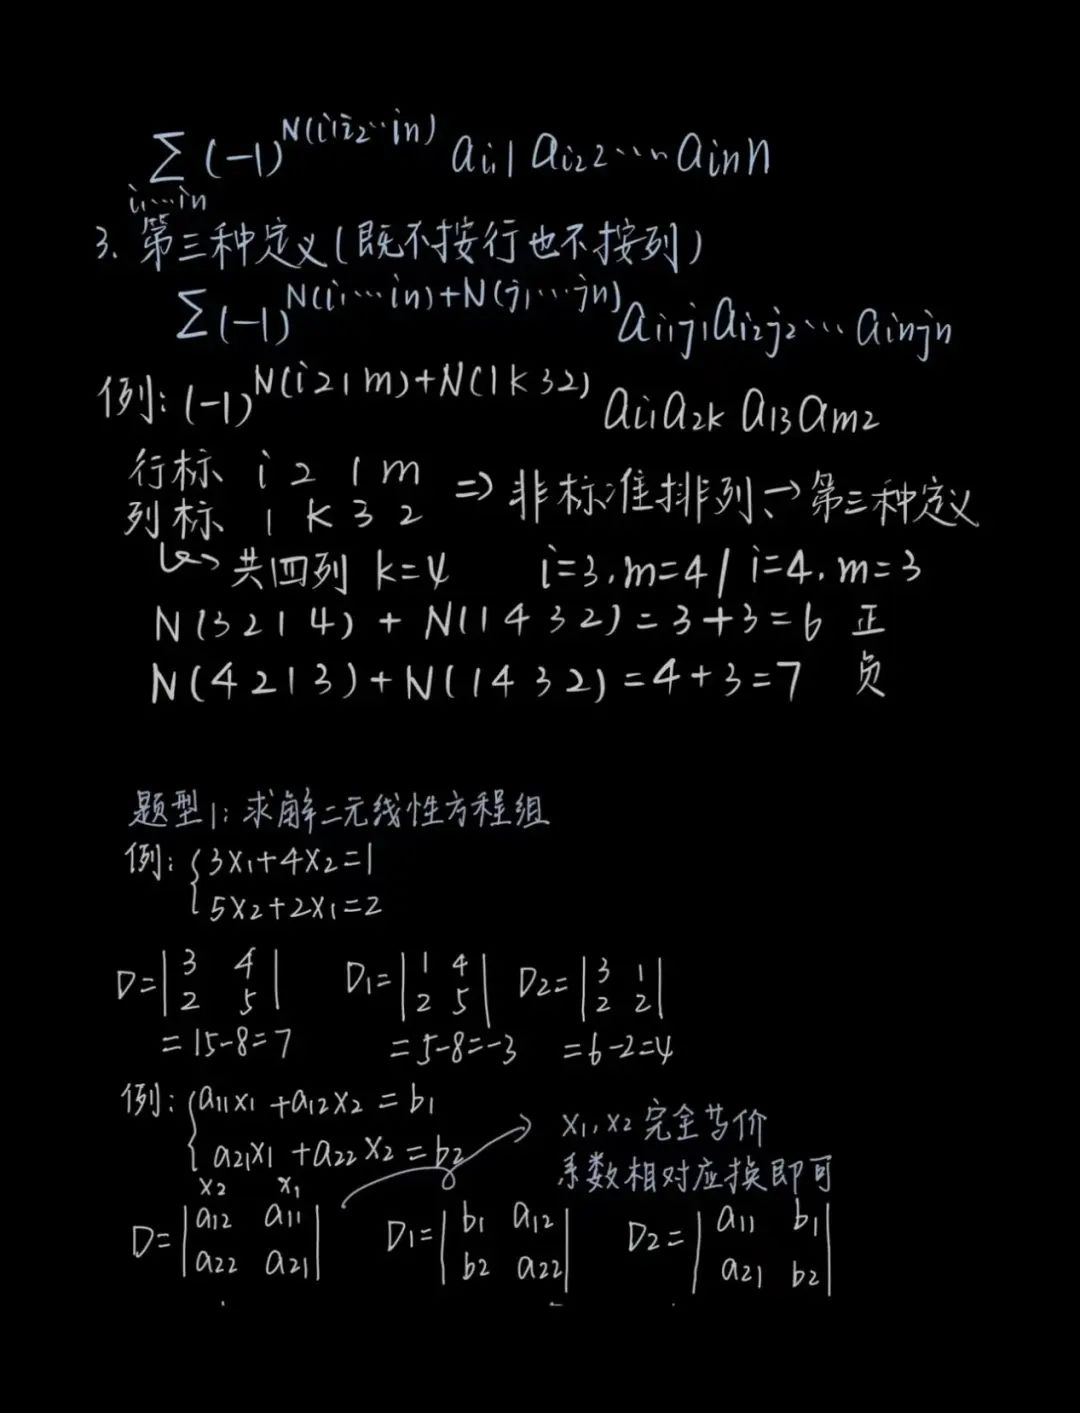 ∑(-1)^N(i1i2…in) ai11 ai22……ainn
i1…in
3. 第三种定义(既不按行也不按列)
∑(-1)^N(i1…in)+N(j1…jn) ai1j1ai2j2…ainjn
例: (-1)^N(i21m)+N(1k32) ai1a2k a13am2
行标 i 2 1 m
列标 1 k 3 2 => 非标准排列、→第三种定义
↳ 共四列 k=4 i=3, m=4 / i=4, m=3
N(3214) + N(1432)=3+3=6 正
N(4213)+N(1432)=4+3=7 负
题型1: 求解二元线性方程组
例: {3x1+4x2=1
5x2+2x1=2
D=|3 4| D1=|1 4| D2=|3 1|
|2 5| |2 5| |2 2|
=15-8=7 =5-8=-3 =6-2=4
例: {a11x1+a12x2=b1
a21x1+a22x2=b2
x1,x2完全等价
系数相对应换即可
x2 x1
D=|a12 a11| D1=|b1 a12| D2=|a11 b1|
|a22 a21| |b2 a22| |a21 b2|